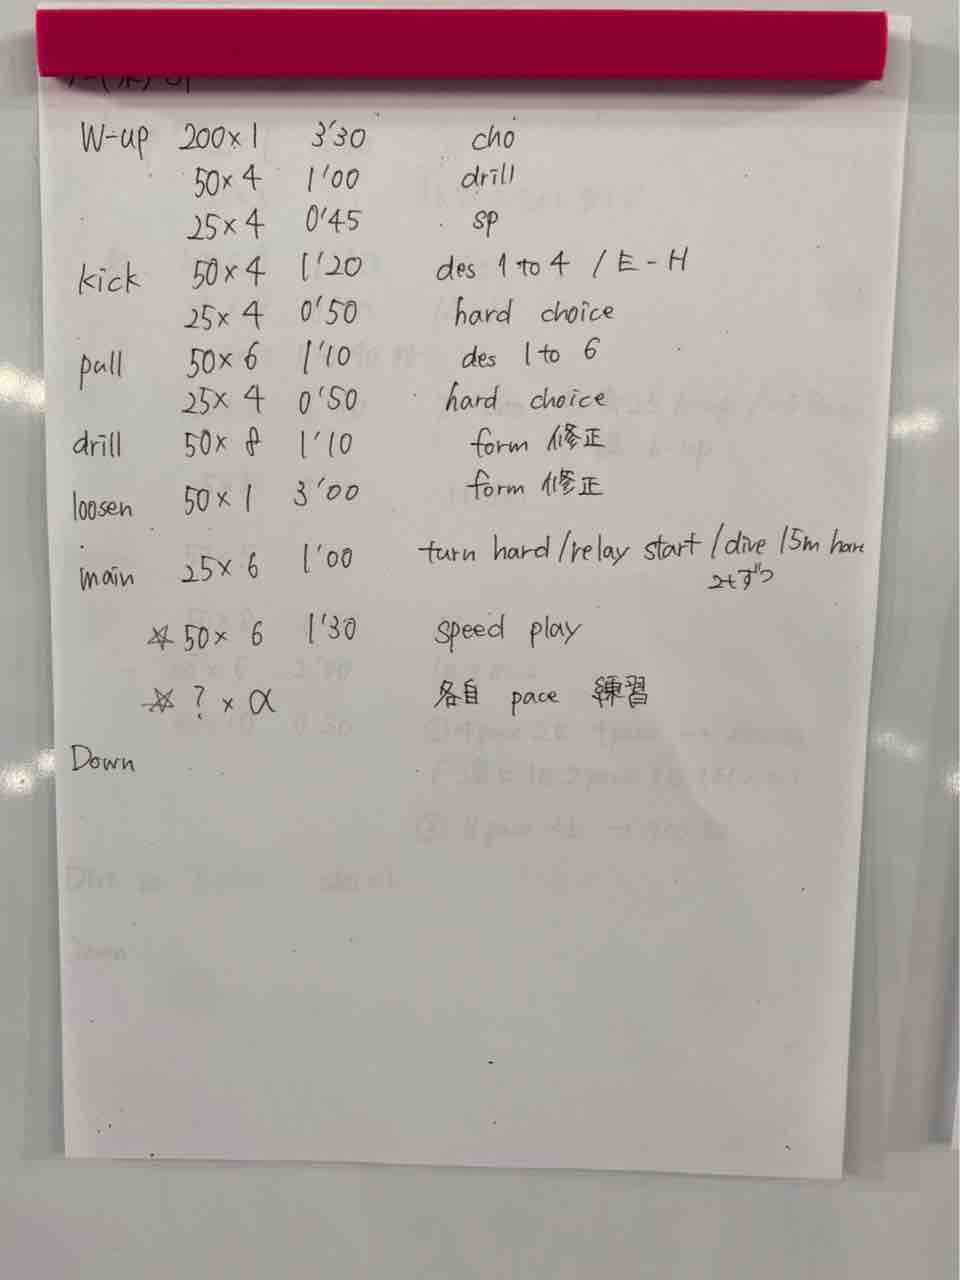 W-up 200×1 3'30 cho
50×4 1'00 drill
25×4 0'45 sp
kick 50×4 1'20 des 1 to 4 / E-H
25×4 0'50 hard choice
pull 50×6 1'10 des 1 to 6
25×4 0'50 hard choice
drill 50×8 1'10 form 修正
loosen 50×1 3'00 form 修正
main 25×6 1'00 turn hard/relay start/dive 15m hard
2tずつ
☆50×6 1'30 speed play
☆?×α 各自 pace 練習
Down